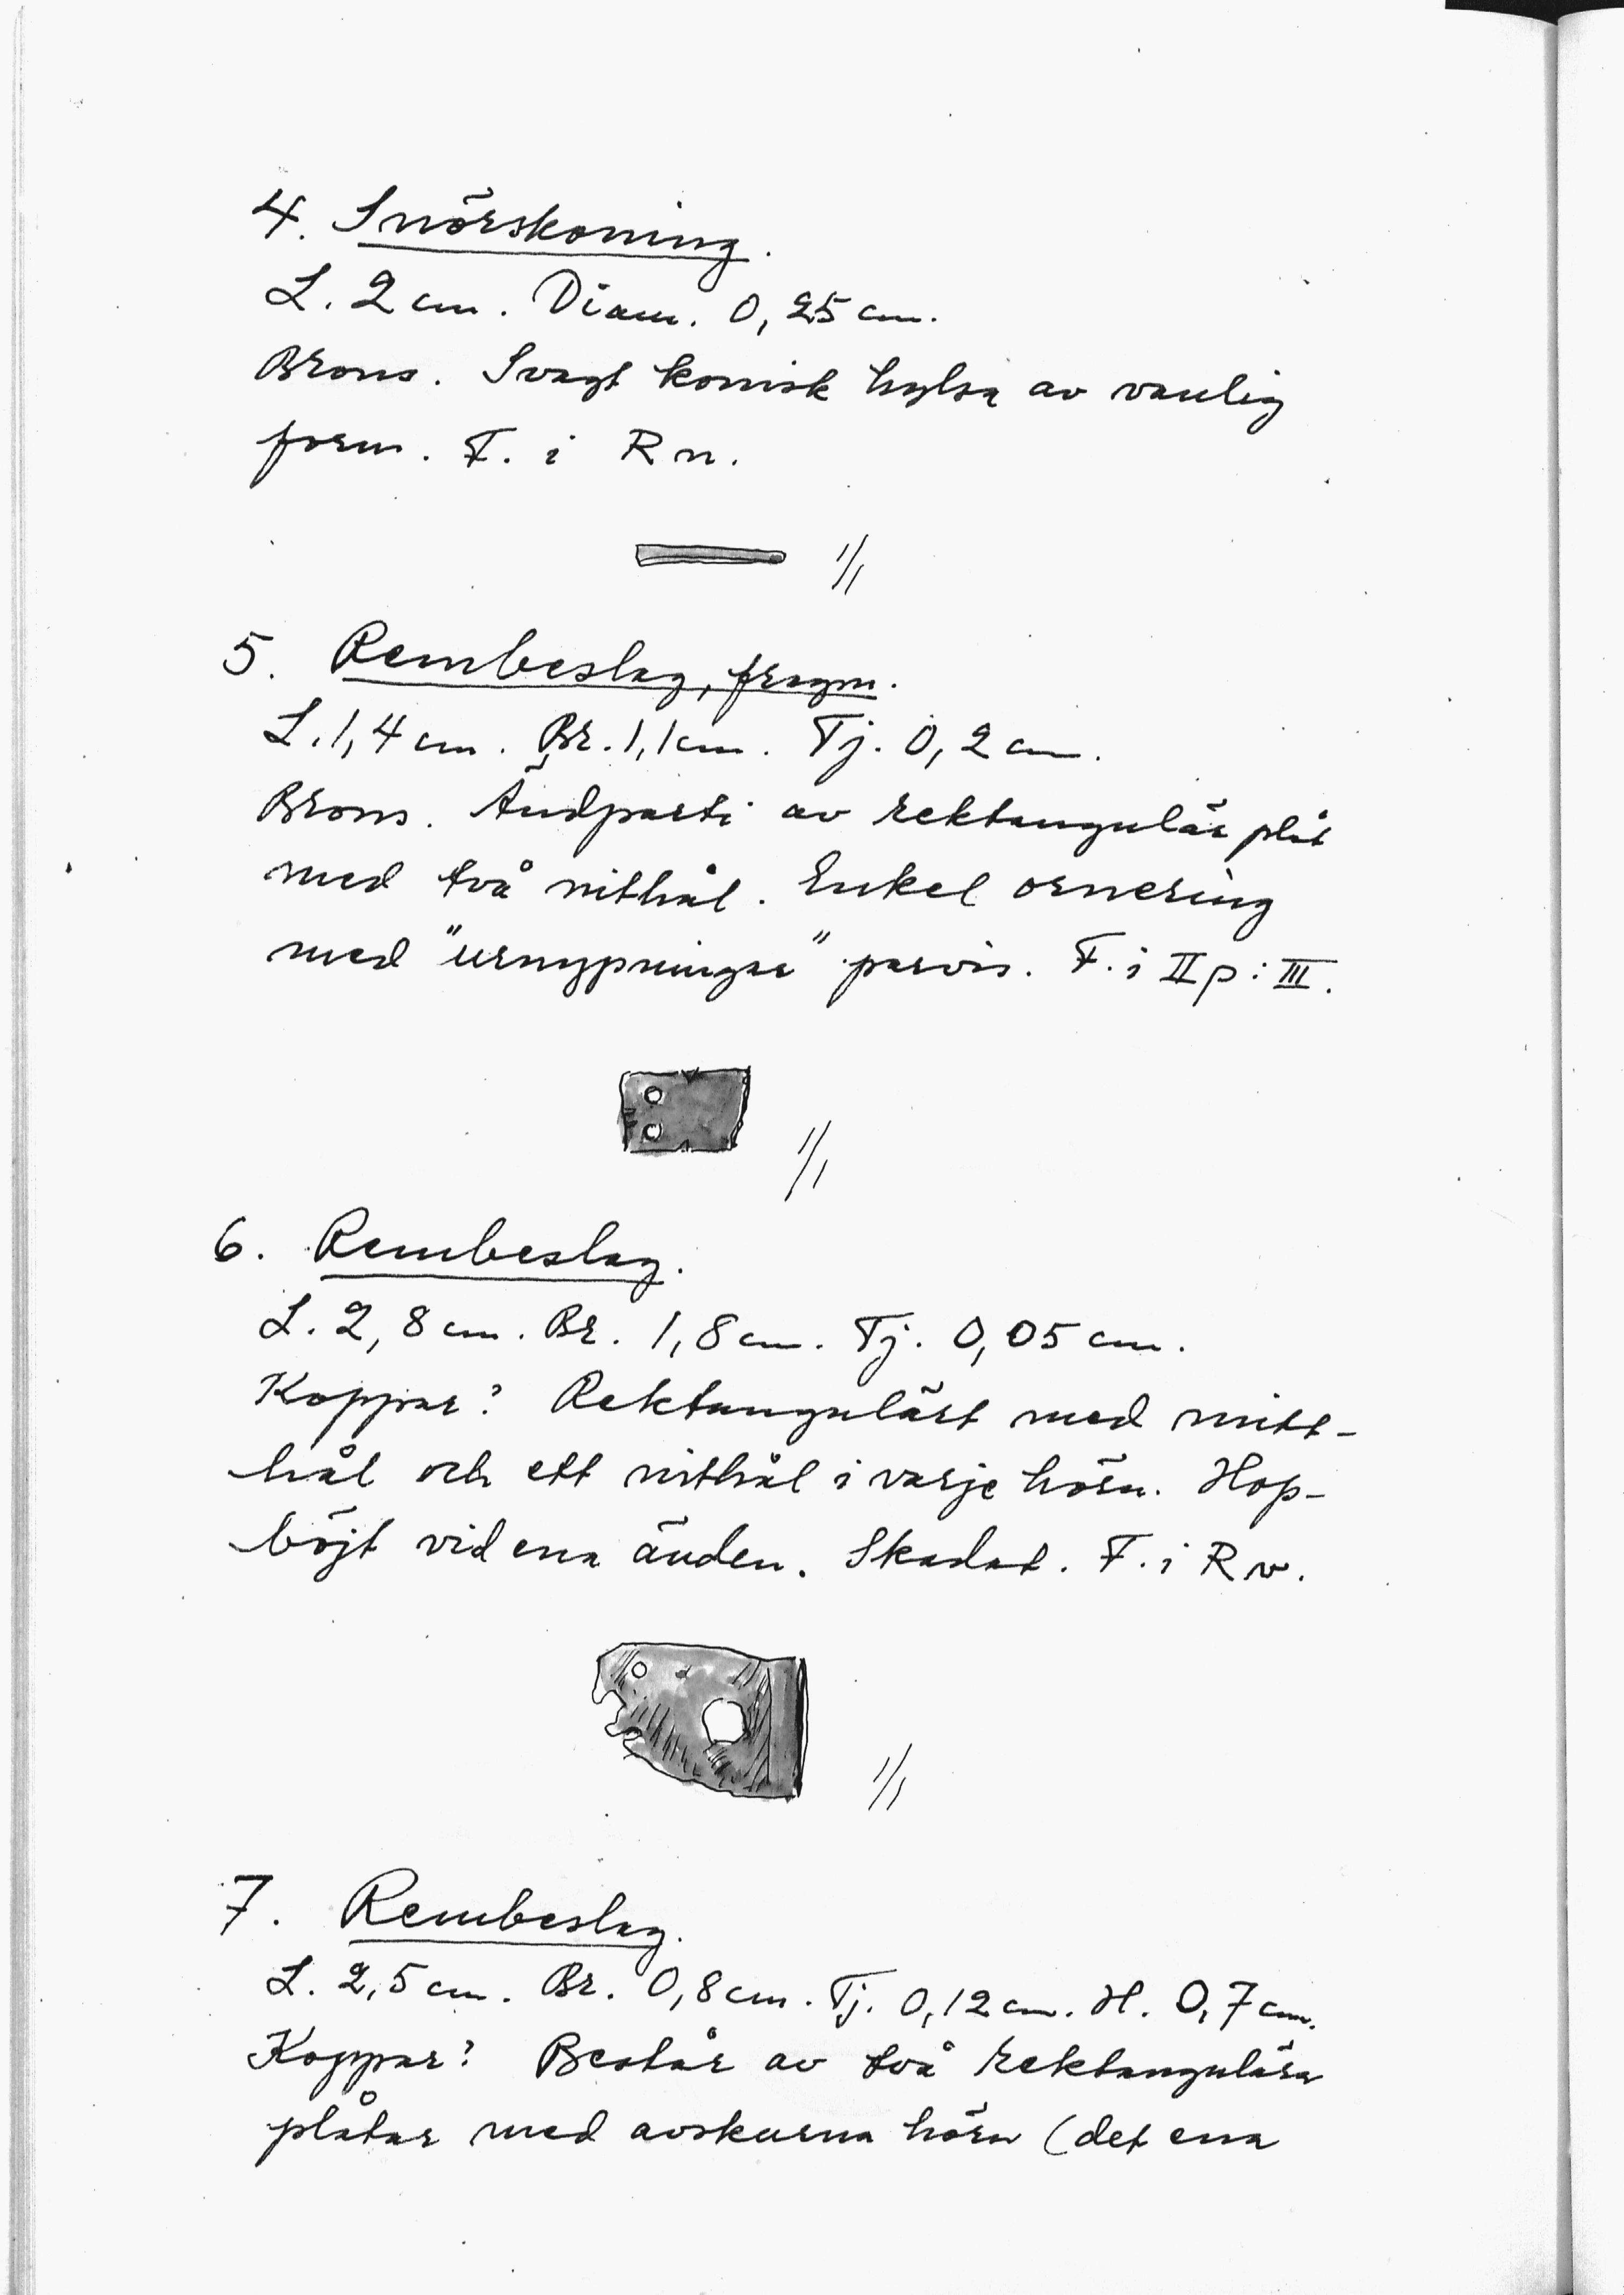 4. Snörskoning.
L. 2 cm. Diam. 0,25 cm.
Brons. Svagt konisk hylsa av vanlig
form. F. i R n.
1/1
5. Rembeslag, fragm.
L. 1,4 cm. Br. 1,1 cm. Tj. 0,2 cm.
Brons. Ändparti av rektangulär plåt
med två nithål. Enkel ornering
med "urnypningar" parvis. F. i II p : III.
1/1
6. Rembeslag.
L. 2,8 cm. Br. 1,8 cm. Tj. 0,05 cm.
Koppar? Rektangulärt med mitt-
hål och ett nithål i varje hörn. Hop-
böjt vid ena änden. Skadat. F. i R v.
1/1
7. Rembeslag.
L. 2,5 cm. Br. 0,8 cm. Tj. 0,12 cm. H. 0,7 cm.
Koppar? Består av två rektangulära
plåtar med avskurna hörn (det ena